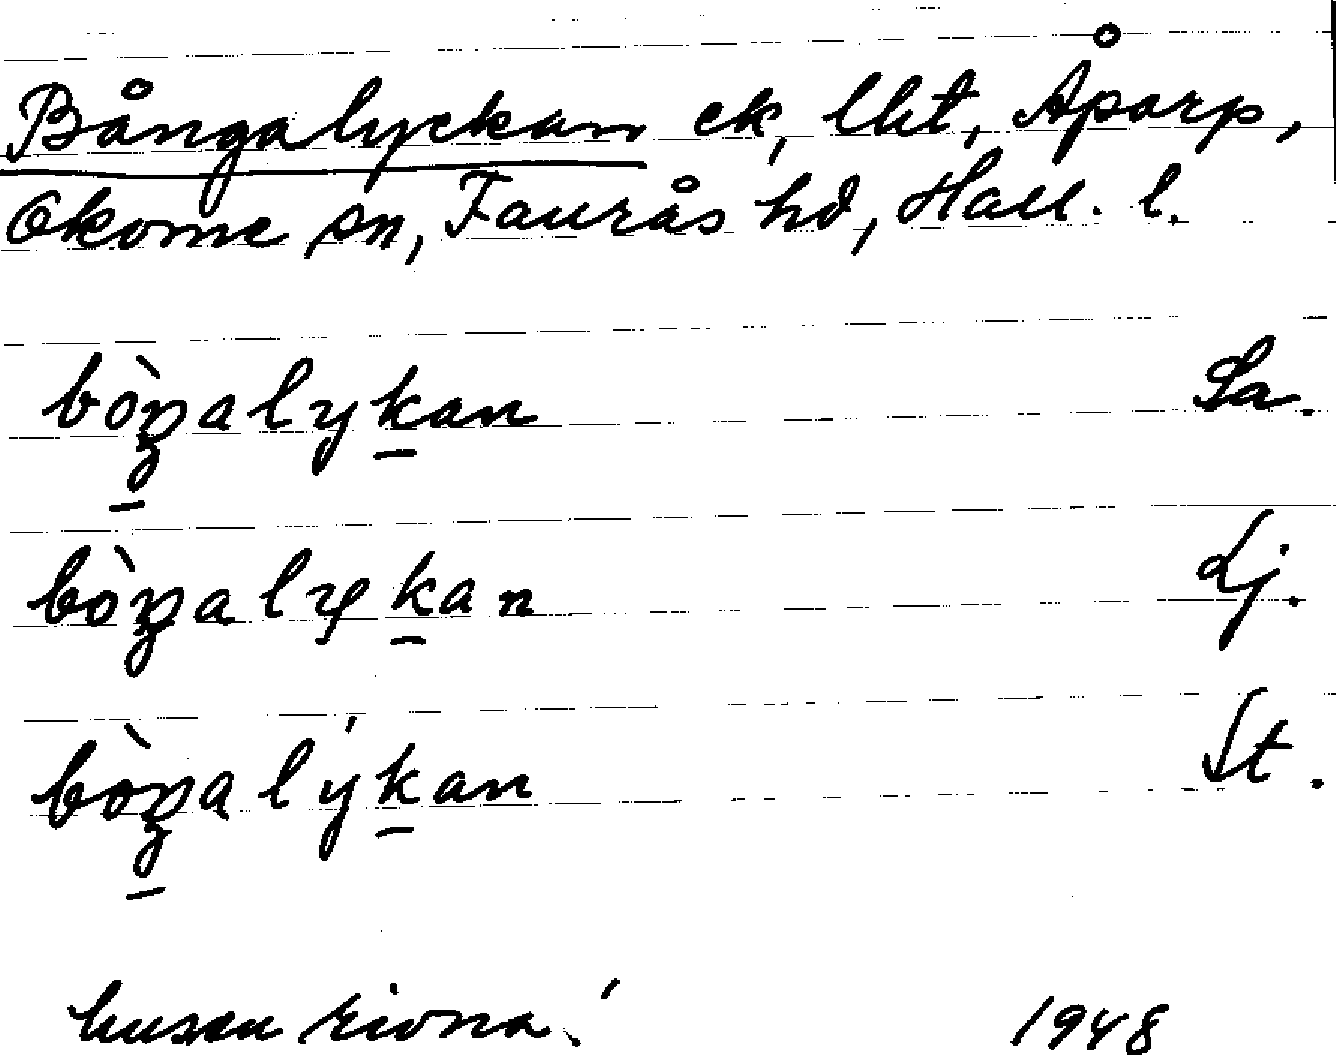 Bångalyckan ck, lht, Åparp,
Okome sn, Faurås hd, Hall. l.
bòŋalykan Sa.
bòŋalykan Lj.
bòŋalýkan St.
husen rivna. 1948